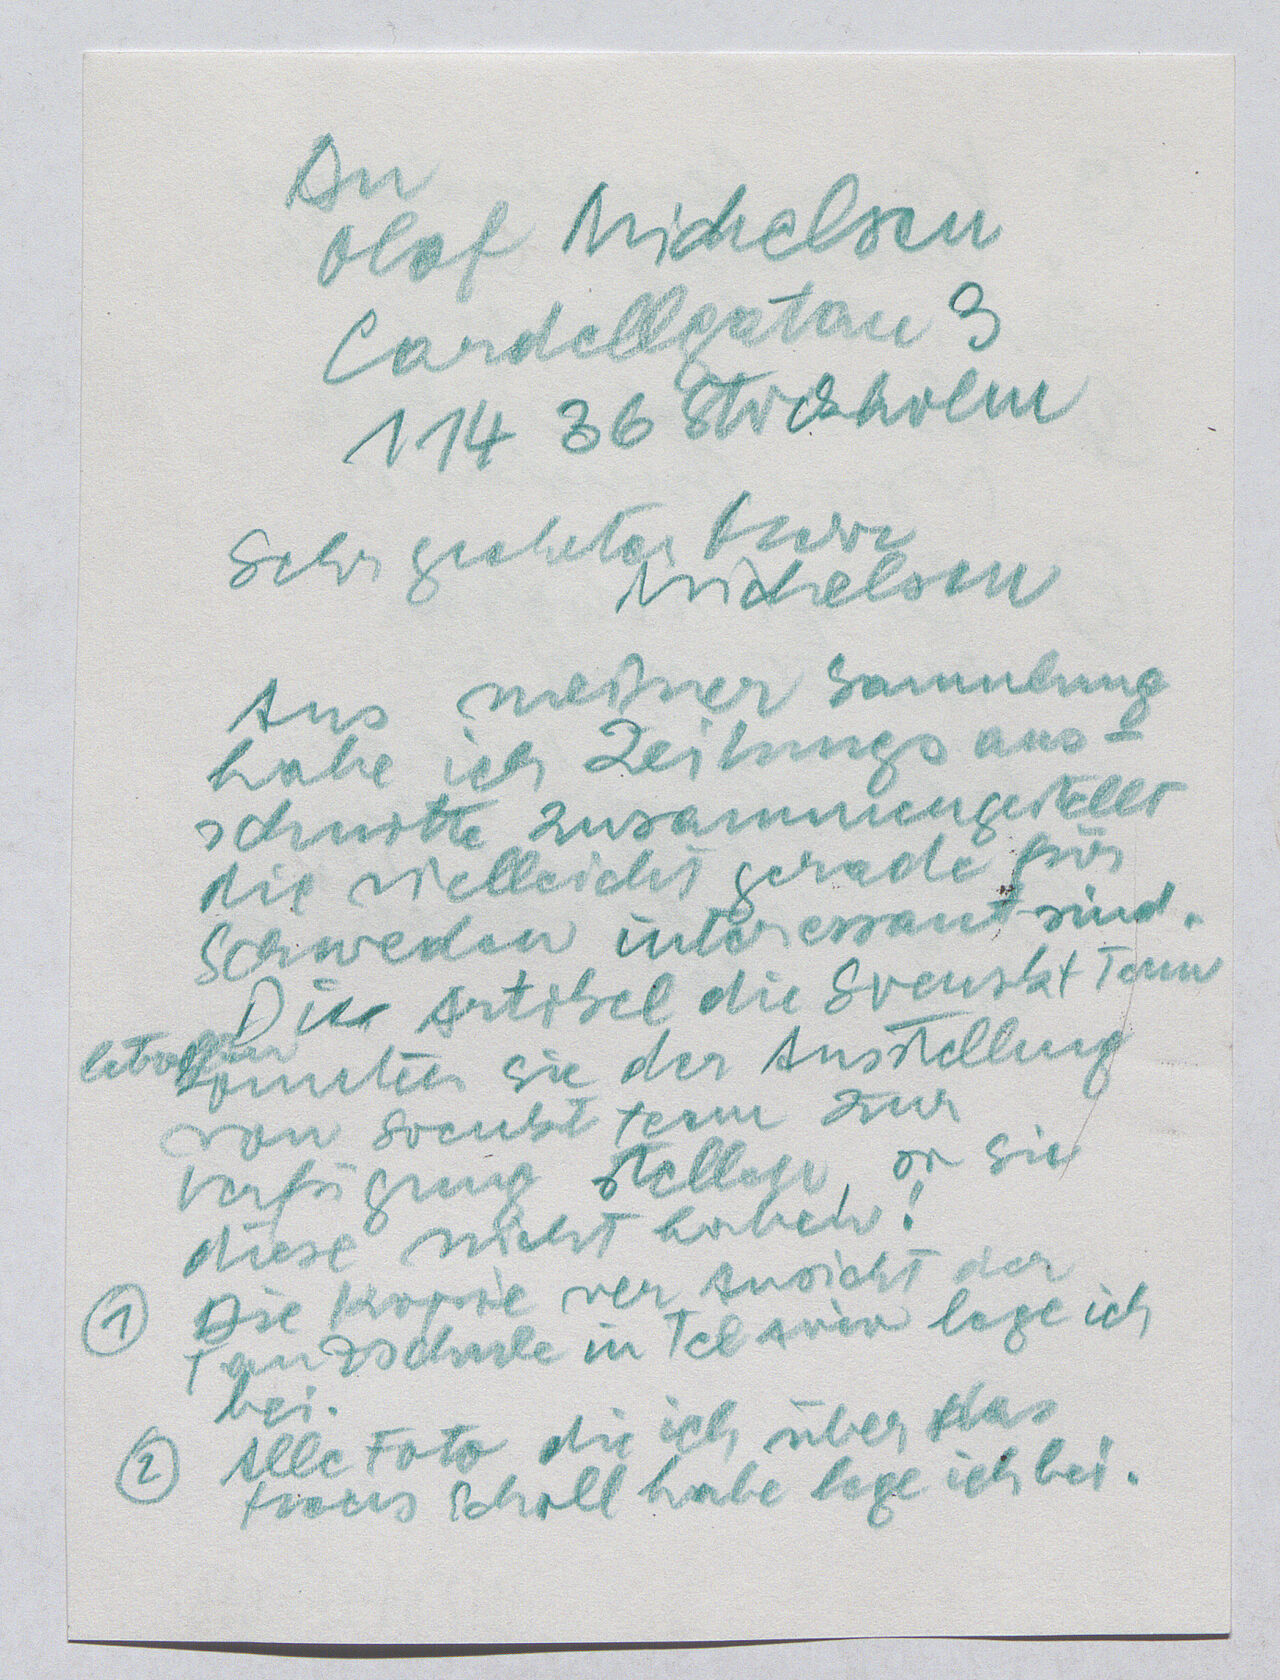 An
Olof Michelsen
Cardellgatan 3
114 36 Stockholm
Sehr geehrter Herr
Michelsen
Aus meiner Sammlung
habe ich Zeitungsaus-
schnitte zusammengestellt
die vielleicht gerade für
Schweden interessant sind.
Die Artikel die Svenskt Tenn
betreffen
könnten sie der Ausstellung
von Svenskt tenn zur
Verfügung stellen, so sie
diese nicht haben!
① Die Kopie der Ansicht der
Tanzschule in Tel Aviv lege ich
bei.
② Alle Foto die ich über das
Haus Scholl habe lege ich bei.